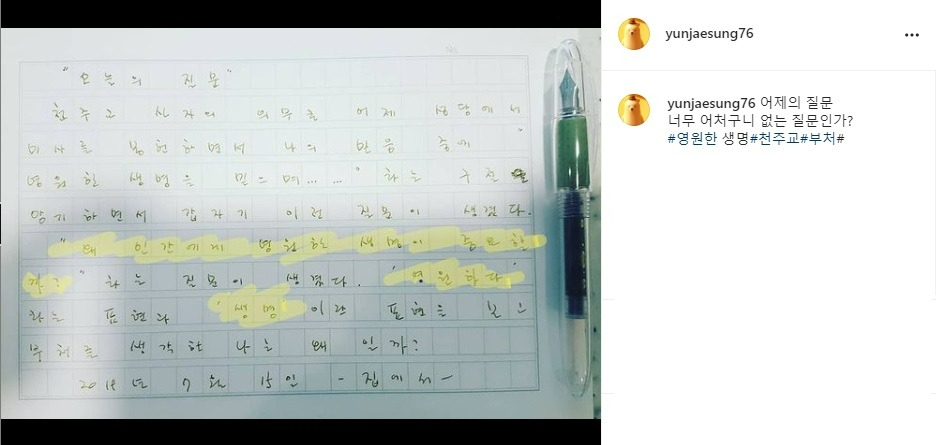 No.
"오늘의 질문"
천주교 신자의 의무를 어제 성당에서
미사를 봉헌하면서 나의 믿음 중에 "
영원한 생명을 믿으며......" 하는 구절을
암기하면서 갑자기 이런 질문이 생겼다.
"왜 인간에게 영원한 생명이 중요한
가?" 하는 질문이 생겼다. "영원하다"
라는 표현과 '생명' 이란 표현을 보고
부처를 생각한 나는 왜 일까?
년 7월 15일 - 집에서 -
yunjaesung76
yunjaesung76 어제의 질문
너무 어처구니 없는 질문인가?
#영원한 생명#천주교#부처#